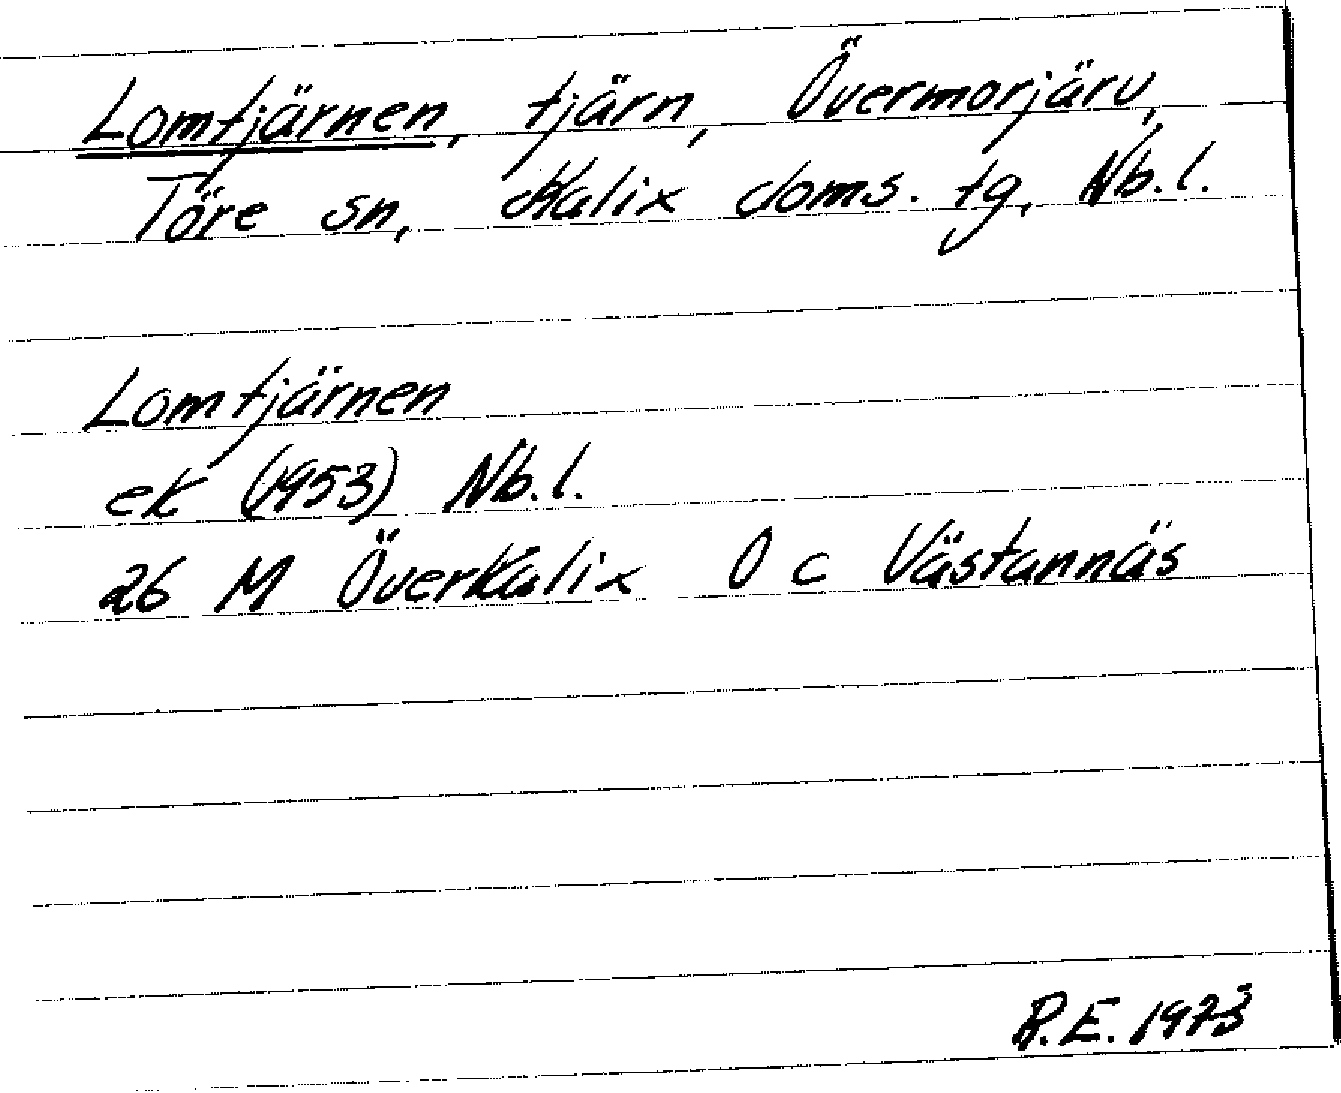 Lomtjärnen, tjärn, Övermorjärv,
Töre sn, Kalix doms. tg, Nb.l.
Lomtjärnen
ek (1953) Nb.l.
26 M Överkalix O c Västannäs
R.E. 1973